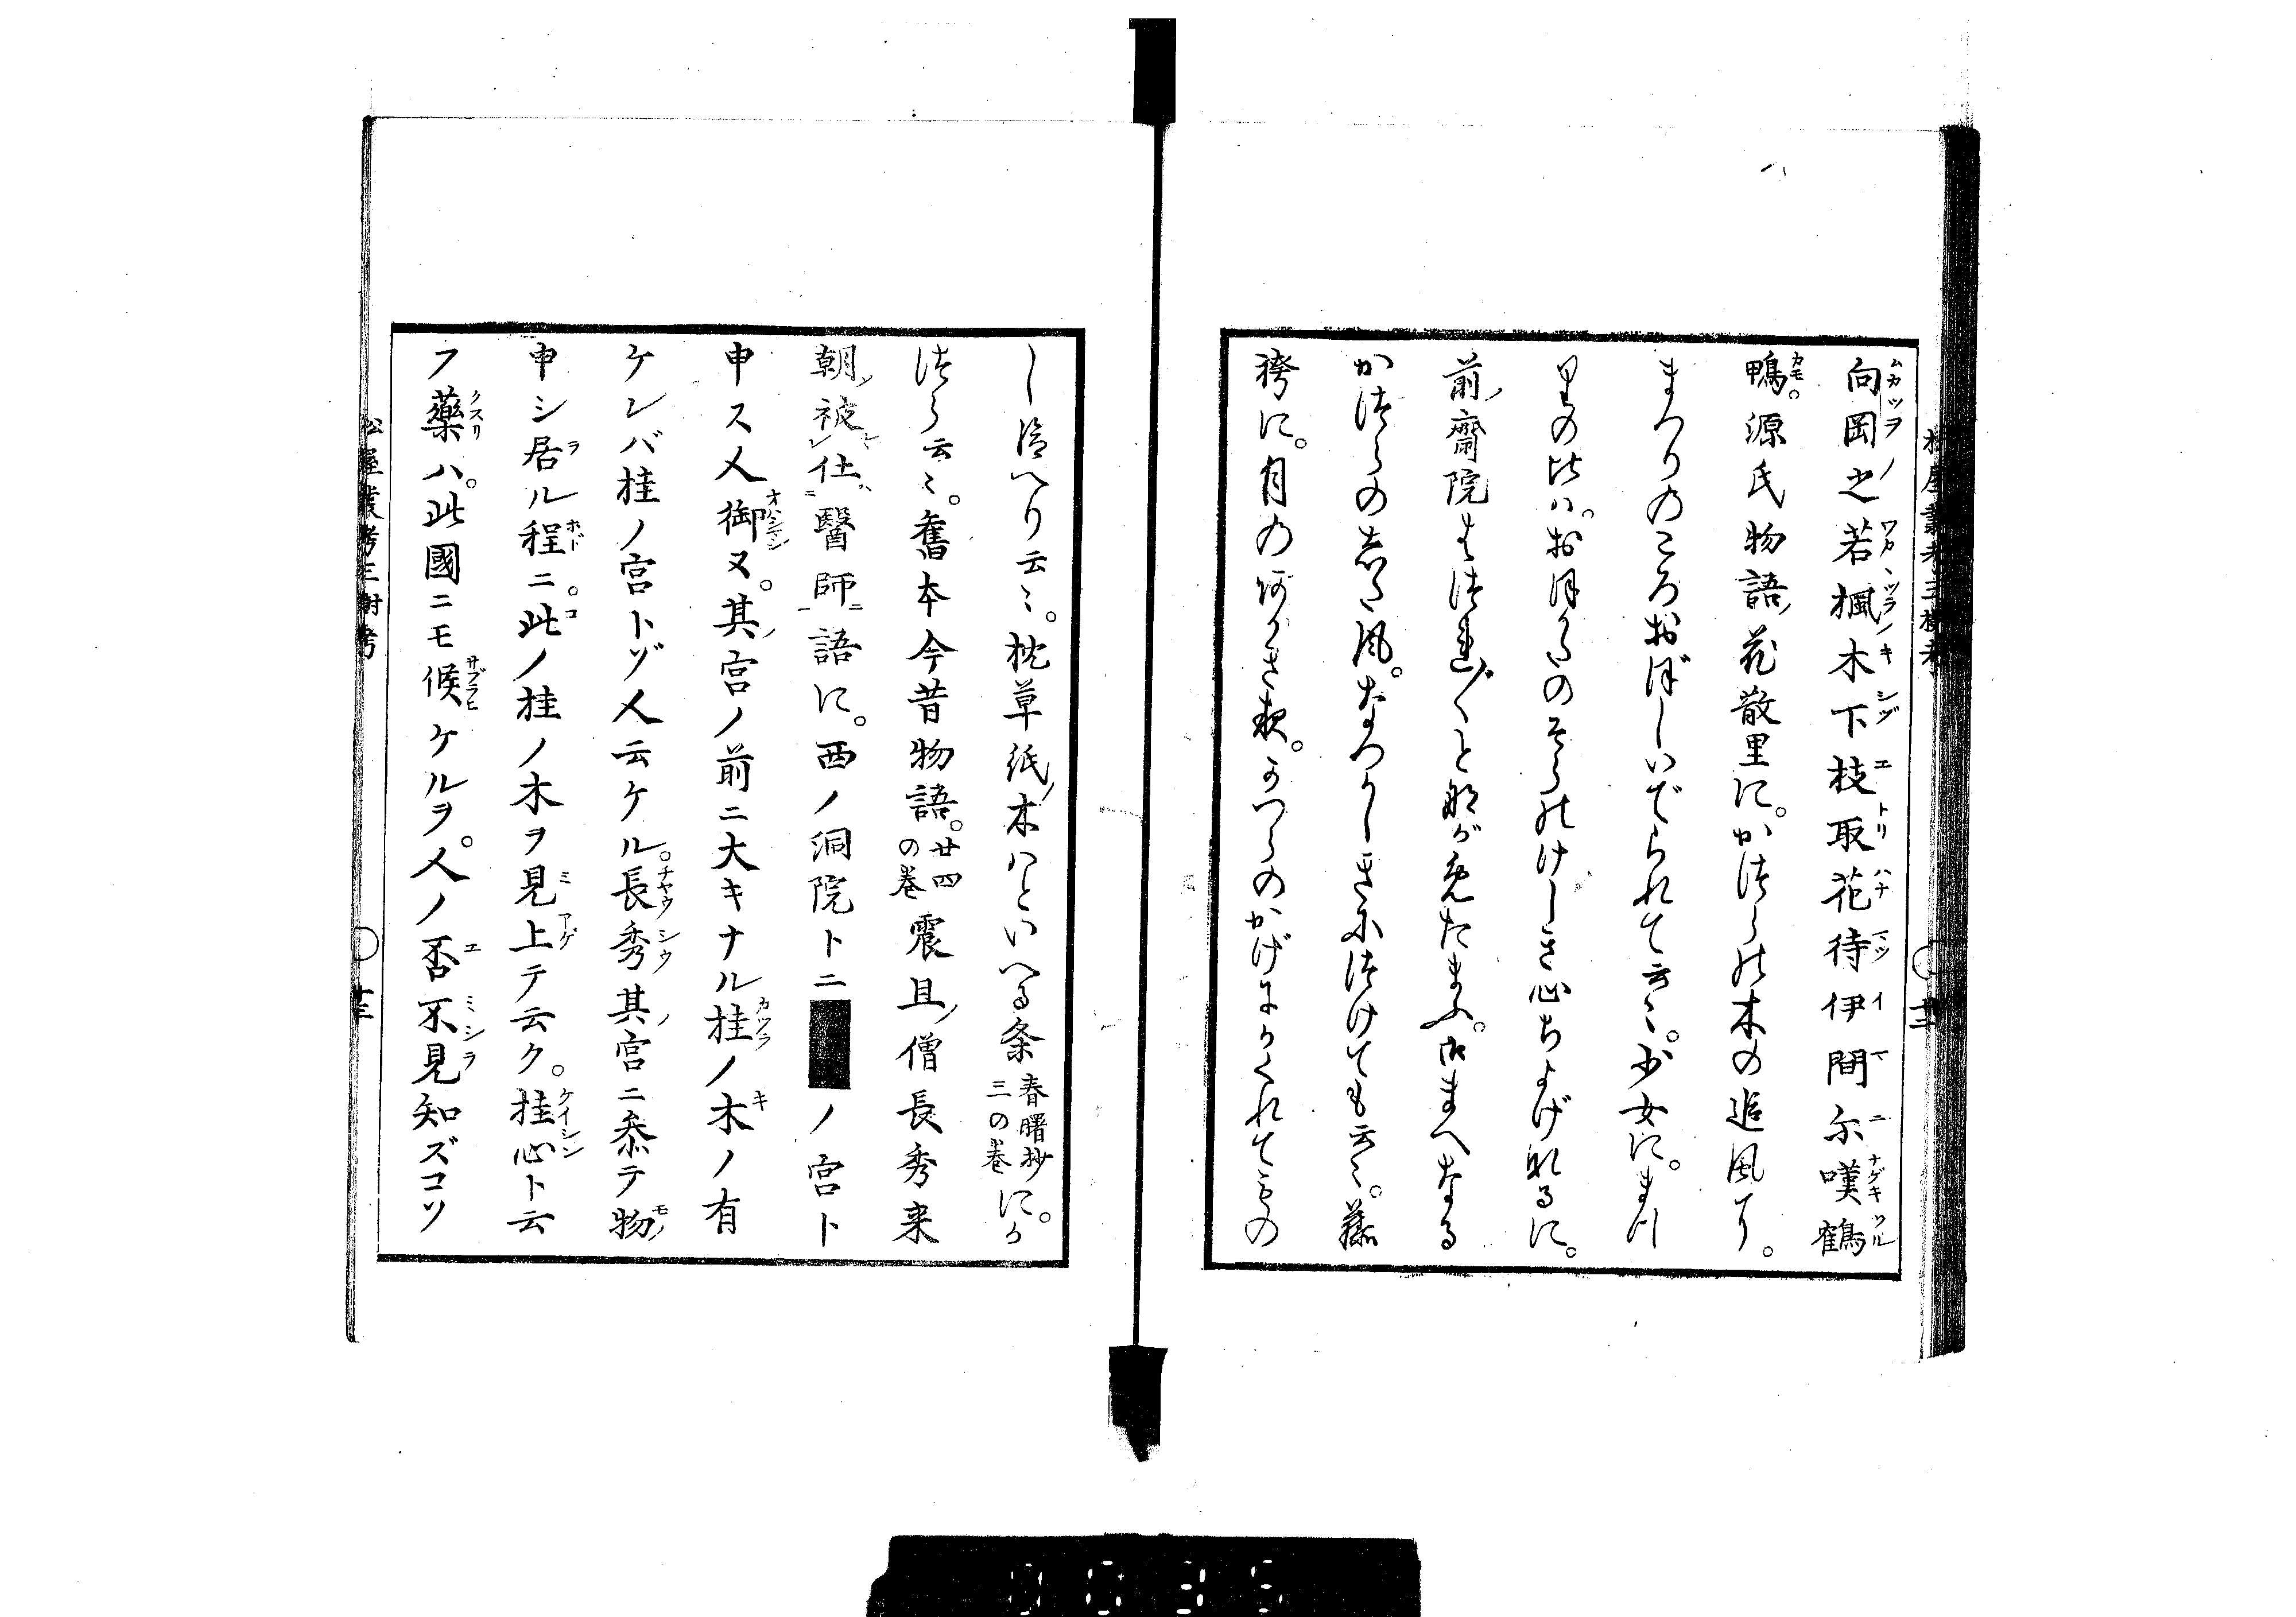 向岡之若楓木下枝取花待伊間尓嘆鶴
鴨。源氏物語ノ花散里に。かつらの木の追風に。
まつりのころおぼしいでられて云々。少女に。まつ
りの比は。おほかたのそらのけしき心ちよげなるに。
前ノ齋院はつれ〴〵と眺がめたまふ。御まへなる
かつらのした風。なつかしきにつけても云々。藤
袴に。月のあかき夜。かつらのかげにかくれてもの
し給へり云々。枕草紙ノ木はといへる条春曙抄三の巻に。か
つら云々。舊本今昔物語。廿四の巻震旦ノ僧長秀来
朝ノ被仕醫師語に。西ノ洞院トニ■ノ宮ト
申ス人御ヌ。其ノ宮ノ前ニ大キナル桂ノ木ノ有
ケレバ桂ノ宮トゾ人云ケル。長秀其ノ宮ニ参テ物
申シ居ル程ニ。此ノ桂ノ木ヲ見上テ云ク。桂心ト云
フ藥ハ。此國ニモ候ケルヲ。人ノ否不見知ズコソ
松屋叢考三樹考